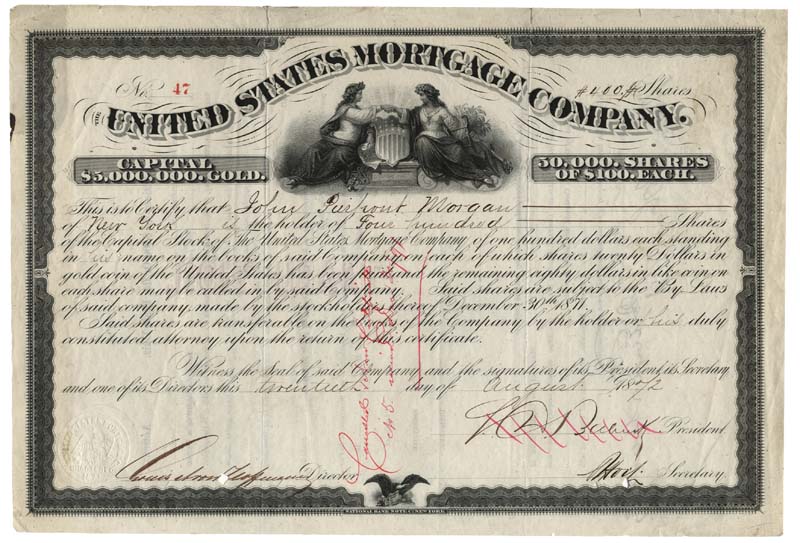 No. 47
#400# Shares
THE UNITED STATES MORTGAGE COMPANY.
CAPITAL
$5,000,000. GOLD.
50,000. SHARES
OF $100. EACH.
This is to Certify, that John Pierpont Morgan
of New York is the holder of Four hundred Shares
of the Capital Stock of The United States Mortgage Company, of one hundred dollars each standing
in his name on the books of said Company on each of which shares twenty Dollars in
gold coin of the United States has been paid and the remaining eighty dollars in like coin on
each share may be called in by said Company. Said shares are subject to the By Laws
of said company, made by the stockholders thereof December 30th 1871.
Said shares are transferable on the books of the Company by the holder or his duly
constituted attorney upon the return of this certificate.
Witness the seal of said Company and the signatures of its President, its Secretary
and one of its Directors this twentieth day of August 1872
President
Director
Secretary
NATIONAL BANK NOTE CO. NEW YORK.